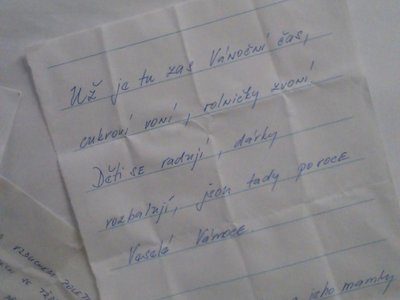 Už je tu zas Vánoční čas,
cukroví voní, rolničky zvoní!
Děti se radují, dárky
rozbalují, jsou tady po roce
Veselé Vánoce.
jeho mamky